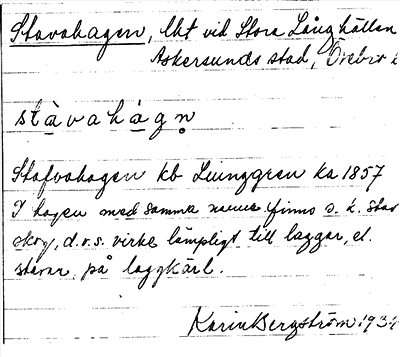 Stavahagen, lht vid Stora Långhällen
Askersunds stad, Örebro
stàvahágn̥
Stafvahagen kb Ljunggren ka 1857
I hagen med samma namn finns s. k. stav
skog, d.v.s. virke lämpligt till laggar, el.
stavar på laggkärl.
Karin Bergström